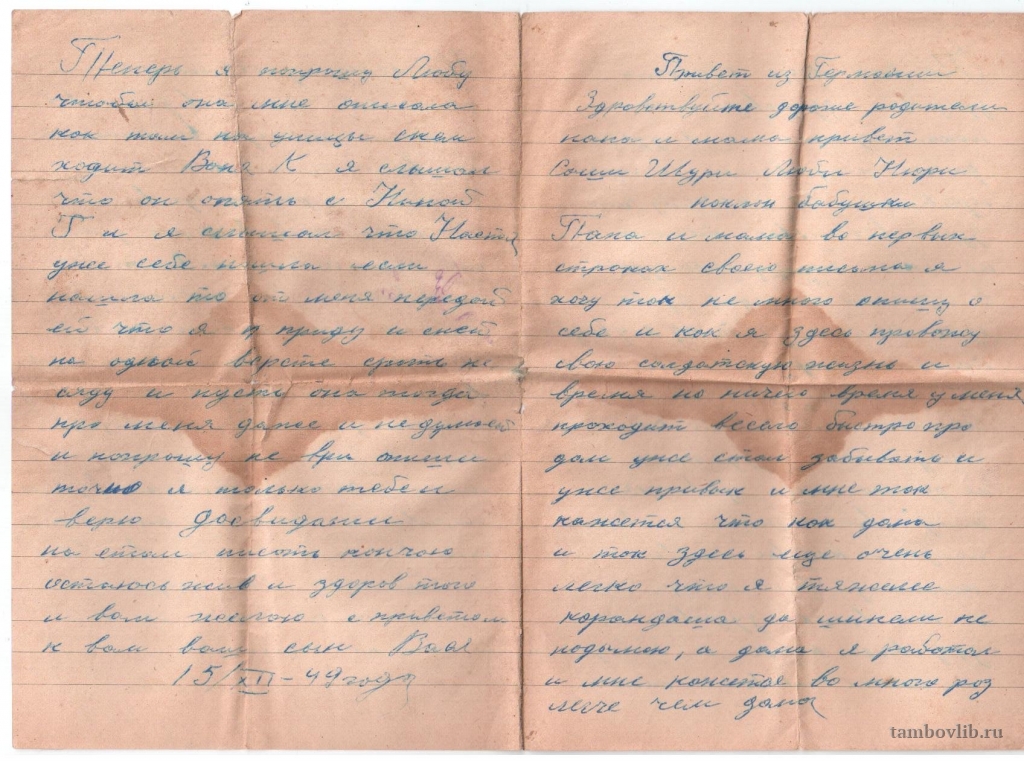 Привет из Германии
Здравствуйте дорогие родители
папа и мама привет
Саши Шури Любы Нюри
поклон бабушки
Папа и мама во первых
строках своего письма я
хочу так не много опишу о
себе и как я здесь провожу
свою солдатскую жизнь и
время но ничего время у меня
проходит весело быстро про
дом уже стал забывать и
уже привык и мне так
кажется что как дома
и так здесь еще очень
легко что я тяжеле
карандаша да шинели не
подымаю, а дома я работал
и мне кажется во много раз
легче чем дома
Теперь я попрошу Любу
чтобы она мне описала
как там на улицы с кем
ходит Ваня К я слышал
что он опять с Ниной
Г и я слышал что Настя
уже себе нашла если
нашла то от меня передай
ей что я приду и с ней
на одной версте срать не
сяду и пусть она тогда
про меня даже и не думает
и попрошу не ври опиши
точно я только тебе и
верю досвидани
на етом писать кончаю
остаюсь жив и здоров того
и вам желаю с приветом
к вам ваш сын Вася
15/XII-49 года
tambovlib.ru